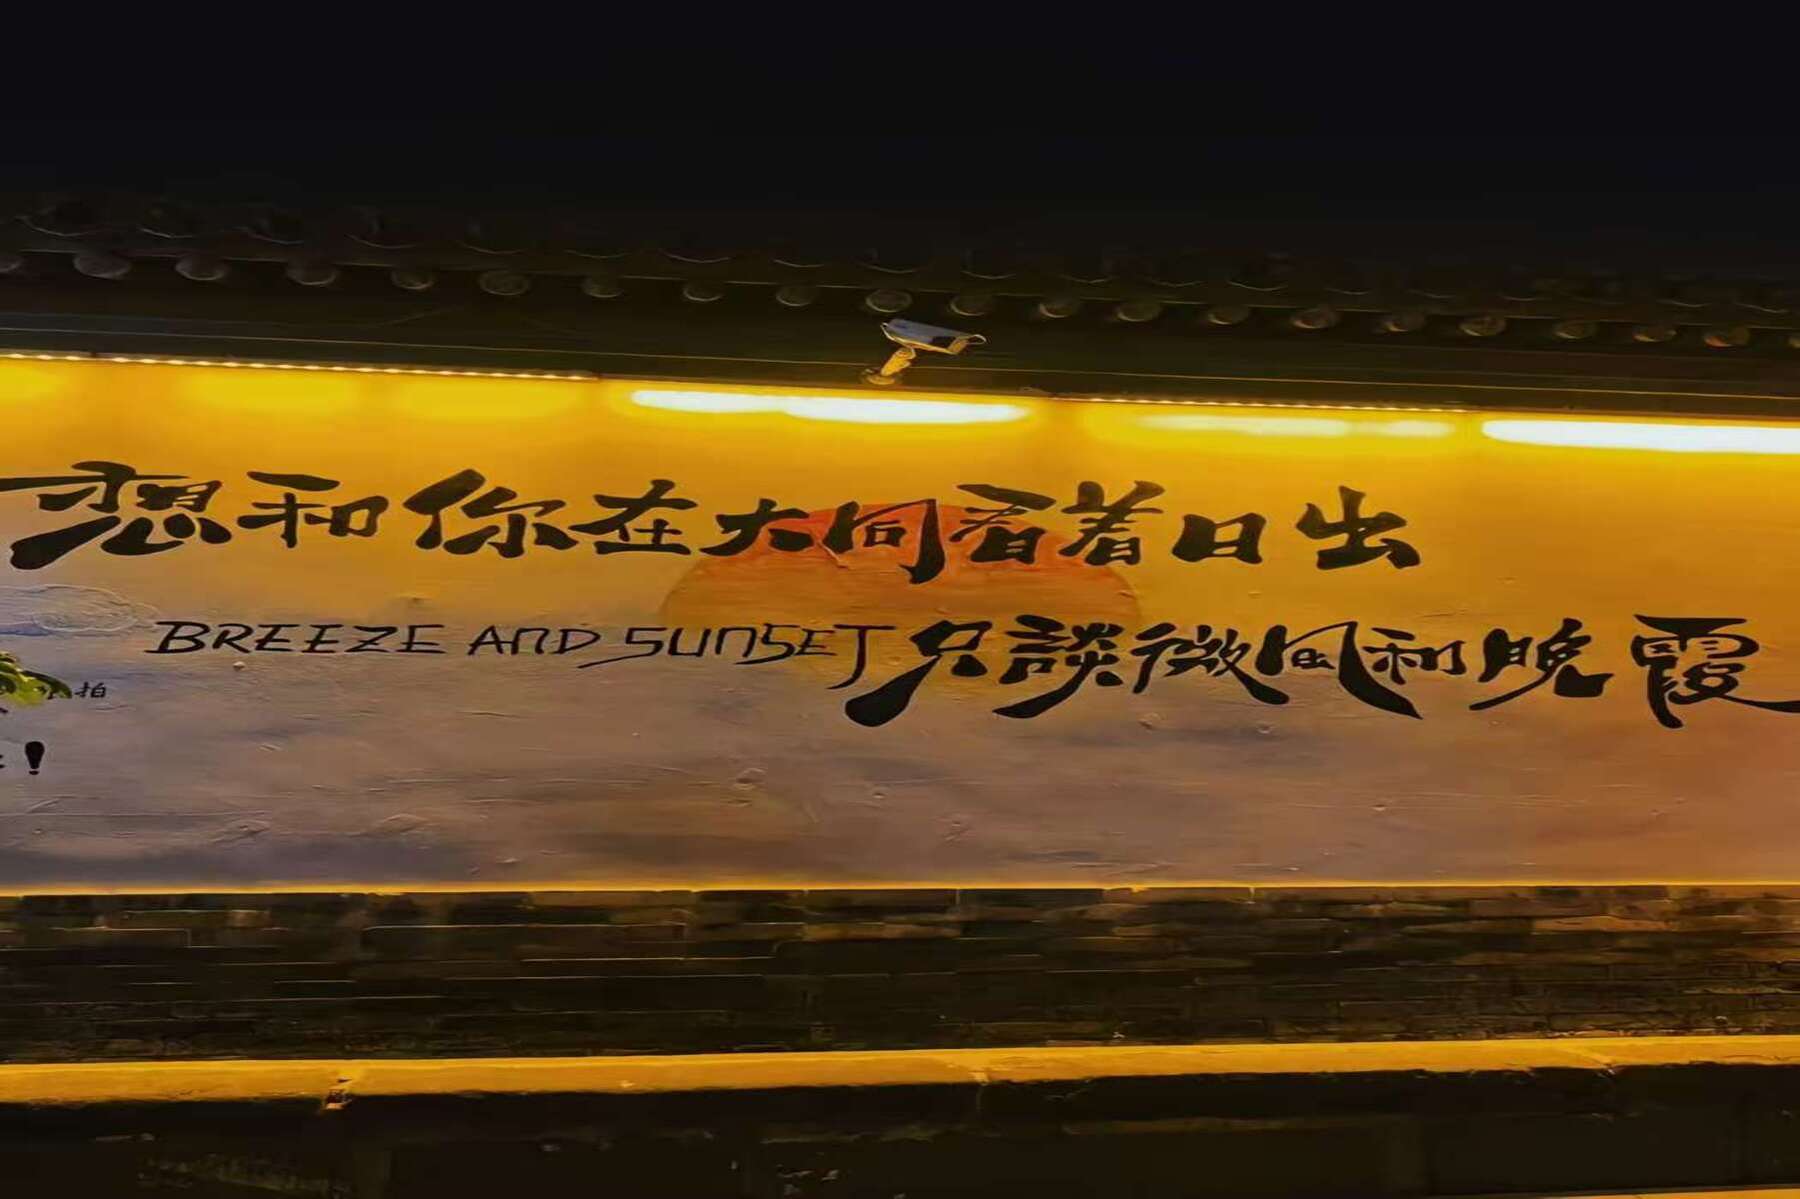 想和你在大同看着日出
BREEZE AND SUNSET 只談微風和晚霞
拍
!